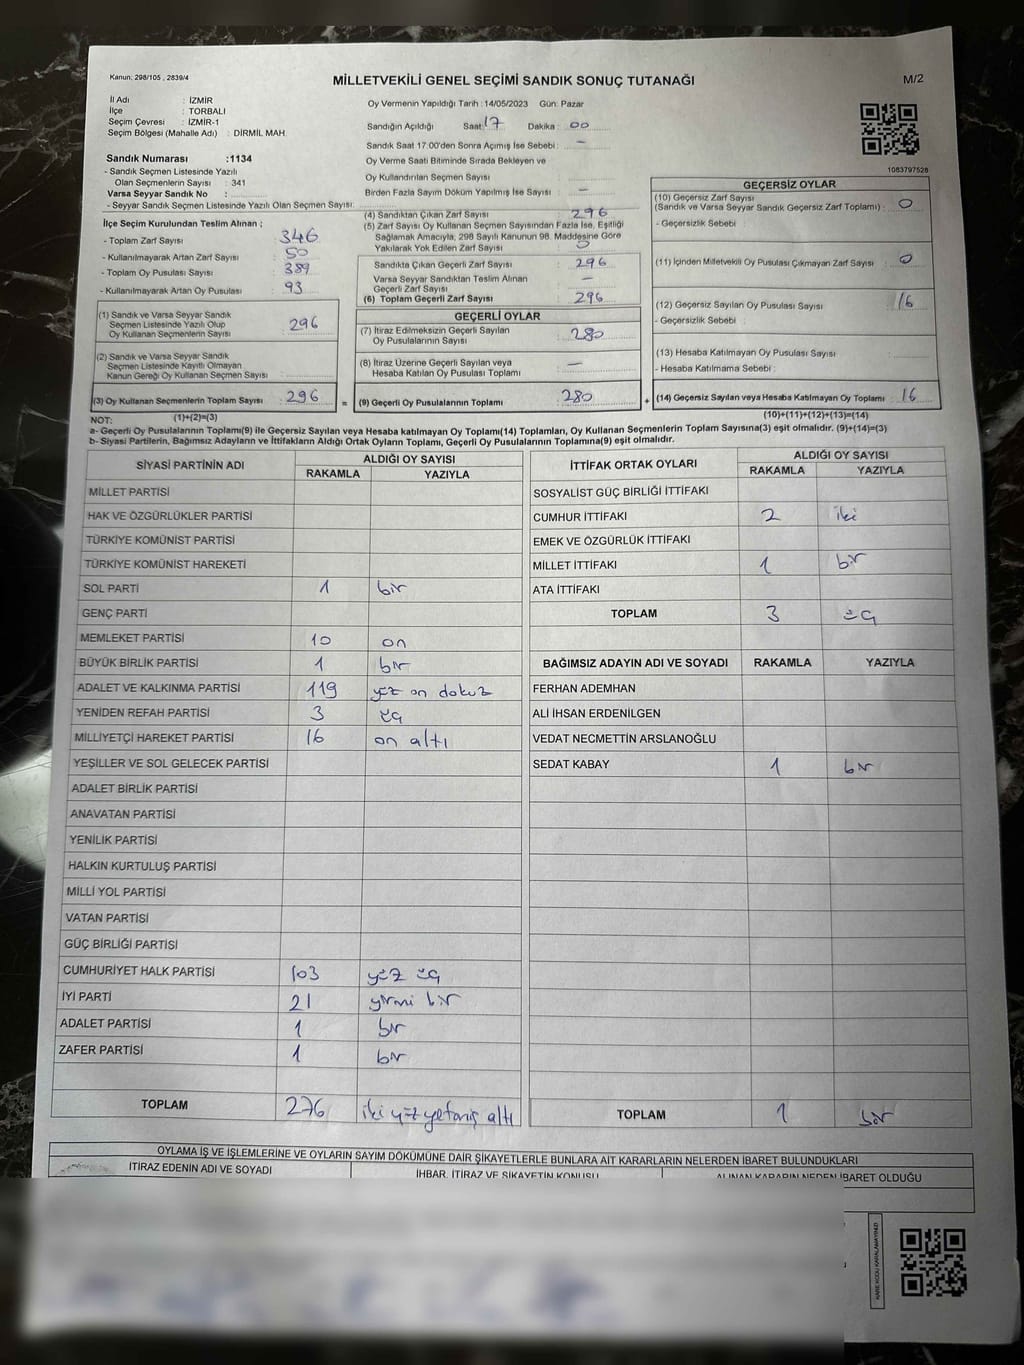 Kanun: 298/105 , 2839/4
MİLLETVEKİLİ GENEL SEÇİMİ SANDIK SONUÇ TUTANAĞI
M/2
İl Adı : İZMİR
İlçe : TORBALI
Seçim Çevresi : İZMİR-1
Seçim Bölgesi (Mahalle Adı) : DİRMİL MAH.
Sandık Numarası :1134
- Sandık Seçmen Listesinde Yazılı
Olan Seçmenlerin Sayısı : 341
Varsa Seyyar Sandık No :
- Seyyar Sandık Seçmen Listesinde Yazılı Olan Seçmen Sayısı:
Oy Vermenin Yapıldığı Tarih : 14/05/2023 Gün: Pazar
Sandığın Açıldığı Saat: 17 Dakika : 00
Sandık Saat 17:00'den Sonra Açımış İse Sebebi : -
Oy Verme Saati Bitiminde Sırada Bekleyen ve
Oy Kullandırılan Seçmen Sayısı
Birden Fazla Sayım Döküm Yapılmış İse Sayısı : -
1083797528
İlçe Seçim Kurulundan Teslim Alınan ;
- Toplam Zarf Sayısı 346
- Kullanılmayarak Artan Zarf Sayısı : 50
- Toplam Oy Pusulası Sayısı : 389
- Kullanılmayarak Artan Oy Pusulası : 93
(1) Sandık ve Varsa Seyyar Sandık
Seçmen Listesinde Yazılı Olup
Oy Kullanan Seçmenlerin Sayısı : 296
(2) Sandık ve Varsa Seyyar Sandık
Seçmen Listesinde Kayıtlı Olmayan
Kanun Gereği Oy Kullanan Seçmen Sayısı :
(3) Oy Kullanan Seçmenlerin Toplam Sayısı : 296
(1)+(2)=(3)
(4) Sandıktan Çıkan Zarf Sayısı : 296
(5) Zarf Sayısı Oy Kullanan Seçmen Sayısından Fazla İse, Eşitliği
Sağlamak Amacıyla, 298 Sayılı Kanunun 98. Maddesine Göre
Yakılarak Yok Edilen Zarf Sayısı : 0
Sandıkta Çıkan Geçerli Zarf Sayısı : 296
Varsa Seyyar Sandıktan Teslim Alınan
Geçerli Zarf Sayısı : -
(6) Toplam Geçerli Zarf Sayısı : 296
GEÇERLİ OYLAR
(7) İtiraz Edilmeksizin Geçerli Sayılan
Oy Pusulalarının Sayısı : 280
(8) İtiraz Üzerine Geçerli Sayılan veya
Hesaba Katılan Oy Pusulası Toplamı : -
= (9) Geçerli Oy Pusulalarının Toplamı : 280
GEÇERSİZ OYLAR
(10) Geçersiz Zarf Sayısı
(Sandık ve Varsa Seyyar Sandık Geçersiz Zarf Toplamı) : 0
- Geçersizlik Sebebi
(11) İçinden Milletvekili Oy Pusulası Çıkmayan Zarf Sayısı : 0
(12) Geçersiz Sayılan Oy Pusulası Sayısı : 16
- Geçersizlik Sebebi :
(13) Hesaba Katılmayan Oy Pusulası Sayısı :
- Hesaba Katılmama Sebebi :
+ (14) Geçersiz Sayılan veya Hesaba Katılmayan Oy Toplamı : 16
(10)+(11)+(12)+(13)=(14)
NOT:
a- Geçerli Oy Pusulalarının Toplamı(9) ile Geçersiz Sayılan veya Hesaba katılmayan Oy Toplamı(14) Toplamları, Oy Kullanan Seçmenlerin Toplam Sayısına(3) eşit olmalıdır. (9)+(14)=(3)
b- Siyasi Partilerin, Bağımsız Adayların ve İttifakların Aldığı Ortak Oyların Toplamı, Geçerli Oy Pusulalarının Toplamına(9) eşit olmalıdır.
SİYASİ PARTİNİN ADI ALDIĞI OY SAYISI
RAKAMLA YAZIYLA
MİLLET PARTİSİ
HAK VE ÖZGÜRLÜKLER PARTİSİ
TÜRKİYE KOMÜNİST PARTİSİ
TÜRKİYE KOMÜNİST HAREKETİ
SOL PARTİ 1 bir
GENÇ PARTİ
MEMLEKET PARTİSİ 10 on
BÜYÜK BİRLİK PARTİSİ 1 bir
ADALET VE KALKINMA PARTİSİ 119 yüz on dokuz
YENİDEN REFAH PARTİSİ 3 üç
MİLLİYETÇİ HAREKET PARTİSİ 16 on altı
YEŞİLLER VE SOL GELECEK PARTİSİ
ADALET BİRLİK PARTİSİ
ANAVATAN PARTİSİ
YENİLİK PARTİSİ
HALKIN KURTULUŞ PARTİSİ
MİLLİ YOL PARTİSİ
VATAN PARTİSİ
GÜÇ BİRLİĞİ PARTİSİ
CUMHURİYET HALK PARTİSİ 103 yüz üç
İYİ PARTİ 21 yirmi bir
ADALET PARTİSİ 1 bir
ZAFER PARTİSİ 1 bir
TOPLAM 276 iki yüz yetmiş altı
İTTİFAK ORTAK OYLARI ALDIĞI OY SAYISI
RAKAMLA YAZIYLA
SOSYALİST GÜÇ BİRLİĞİ İTTİFAKI
CUMHUR İTTİFAKI 2 iki
EMEK VE ÖZGÜRLÜK İTTİFAKI
MİLLET İTTİFAKI 1 bir
ATA İTTİFAKI
TOPLAM 3 üç
BAĞIMSIZ ADAYIN ADI VE SOYADI RAKAMLA YAZIYLA
FERHAN ADEMHAN
ALİ İHSAN ERDENİLGEN
VEDAT NECMETTİN ARSLANOĞLU
SEDAT KABAY 1 bir
TOPLAM 1 bir
OYLAMA İŞ VE İŞLEMLERİNE VE OYLARIN SAYIM DÖKÜMÜNE DAİR ŞİKAYETLERLE BUNLARA AİT KARARLARIN NELERDEN İBARET BULUNDUKLARI
İTİRAZ EDENİN ADI VE SOYADI İHBAR, İTİRAZ VE ŞİKAYETİN KONUSU ALINAN KARARIN NEDEN İBARET OLDUĞU
KARE KODU KARALAMAYINIZ!